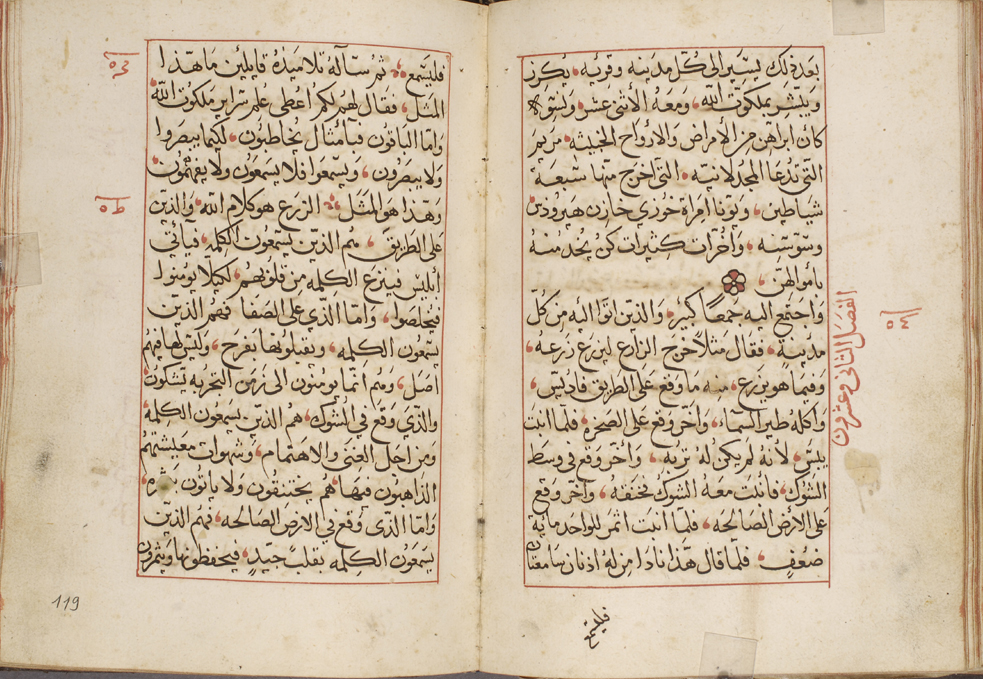 بعد ذلك يسير الى كل مدينه وقريه يكرز
ويبشر بملكوت الله ومعه الاثنى عشر ونسوه
كان ابراهن من الامراض والارواح الخبيثه مريم
التي تدعا المجدلانيه التي اخرج منها سبعة
شياطين ويونا امراة خوزي خازن هيرودس
وسوسنه واخرات كثيرات كن يخدمنه
باموالهن
الفصل الثاني وعشرون
واجتمع اليه جمعًا كبير والذين اتوا اليه من كل
مدينة فقال مثلا خرج الزارع ليزرع زرعه
وفيما هو يزرع منه ما وقع على الطريق فاديس
واكله طير السماء واخر وقع على الصخره فلما انبت
يبس لانه لم يكن له تربه واخر وقع في وسط
الشوك فانبت معه الشوك فخنقه واخر وقع
على الارض الصالحه فلما انبت اثمر للواحد ماية
ضعفٍ فلما قال هذا نادا من له اذنان سامعتان
فليسمع
فليسمع ثم ساله تلاميذه قايلين ما هذا
المثل فقال لهم لكم اعطى علم سراير ملكوت الله
واما الباقون فبامثال يخاطبون لكيما يبصروا
ولا يبصرون ويسمعوا فلا يسمعون ولا يفهمون
وهذا هو المثل الزرع هو كلام الله والذين
على الطريق هم الذين يسمعون الكلمه فياتي
ابليس فينزع الكلمه من قلوبهم لكيلا يومنوا
فيخلصوا واما الذي على الصفا فهم الذين
يسمعون الكلمه ويقبلونها بفرح وليس لها فيهم
اصل وهم انما يومنون الى زمن التجربه يشكون
والذي وقع في الشوك هم الذين يسمعون الكلمه
ومن اجل الغنى والاهتمام وشهوات معيشتهم
الذاهبون فيها هم يختنقون ولا ياتون بثمره
واما الذى وقع في الارض الصالحه فهم الذين
يسمعون الكلمه بقلب جيّدٍ فيحفظونها ويثمرون
119